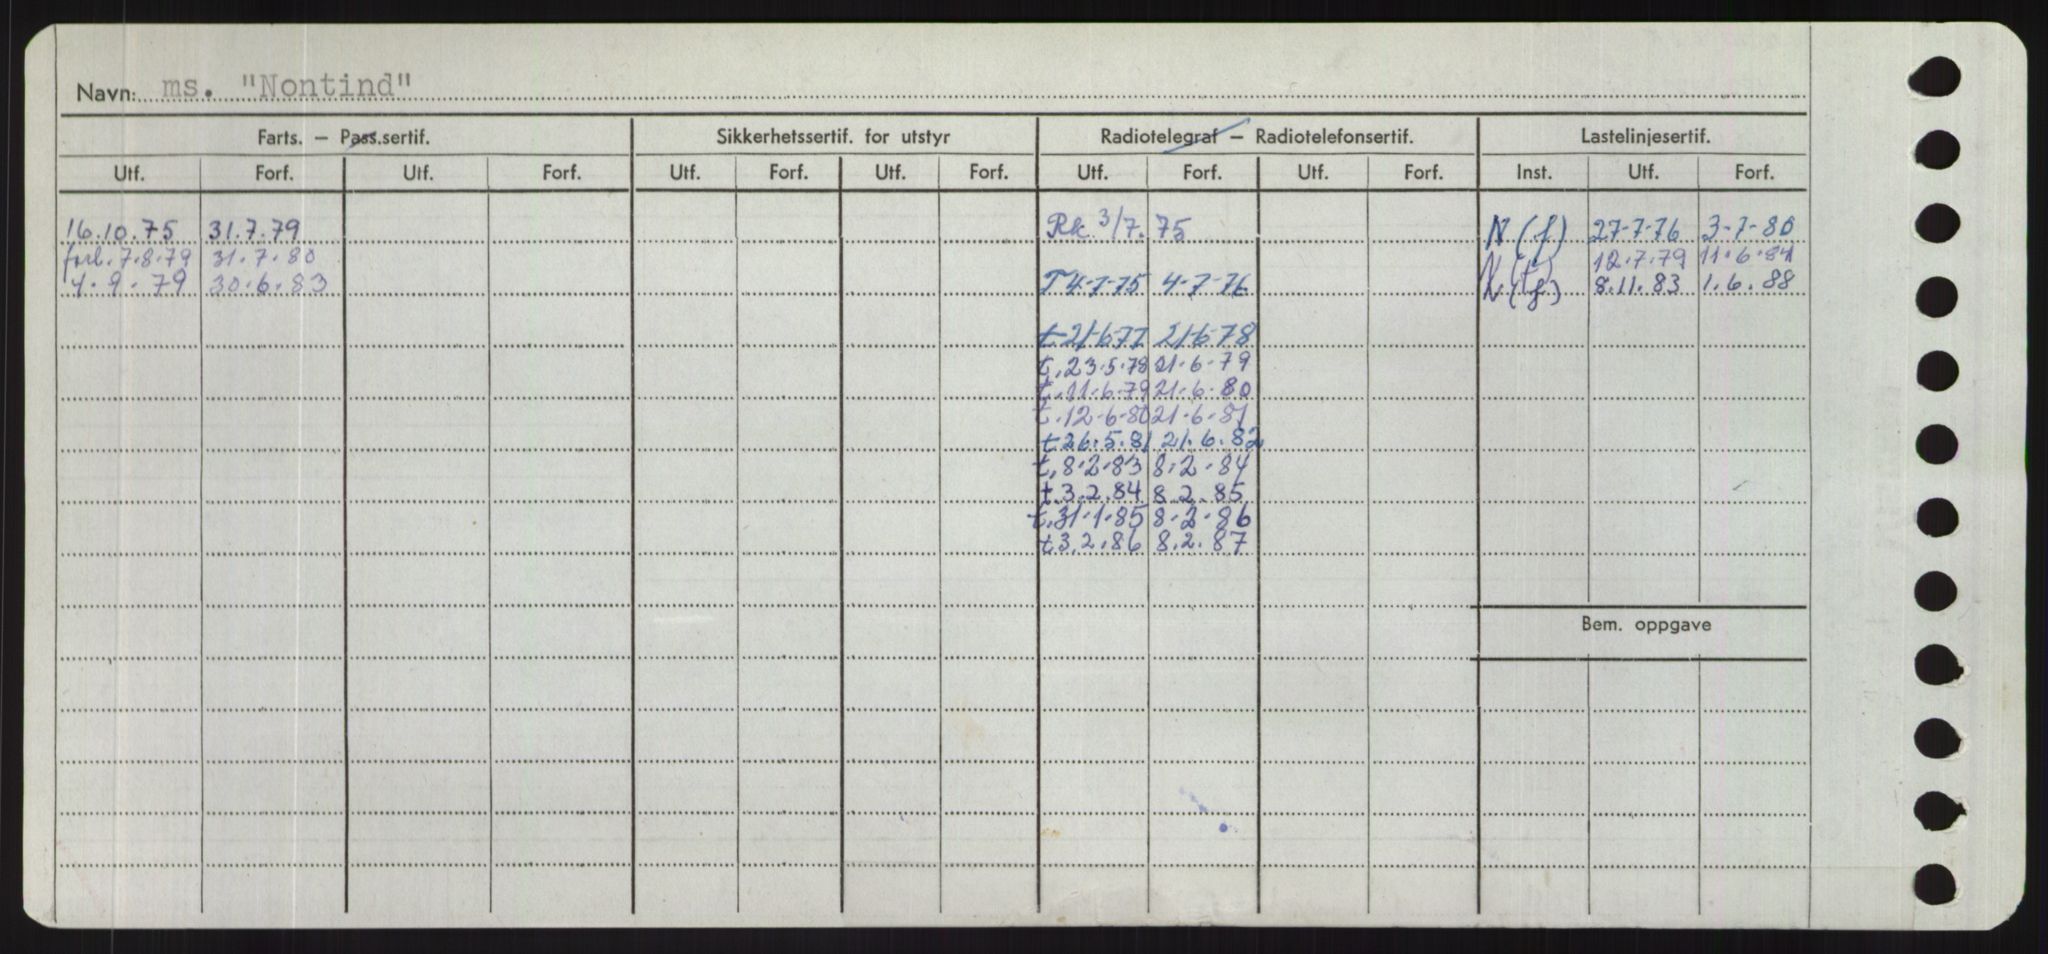 Navn: ms. "Nontind"
Farts. — Pass.sertif. Sikkerhetssertif. for utstyr Radiotelegraf — Radiotelefonsertif. Lastelinjesertif.
Utf. Forf. Utf. Forf. Utf. Forf. Utf. Forf. Utf. Forf. Utf. Forf. Inst. Utf. Forf.
16.10.75 31.7.79 Rk. 3/7.75 N (f) 27-7-76 3-7-80
forl. 7.8.79 31.7.80 N (f) 12.7.79 11.6.84
4.9.79 30.6.83 T 4-7-75 4-7-76 N (f) 8.11.83 1.6.88
t 21-6-77 21-6-78
t. 23.5.78 21.6.79
t. 11.6.79 21.6.80
t. 12-6-80 21.6.81
t 26.5.81 21.6.82
t. 8.2.83 8.2.84
t. 3.2.84 8.2.85
t. 31.1.85 8.2.86
t. 3.2.86 8.2.87
Bem. oppgave